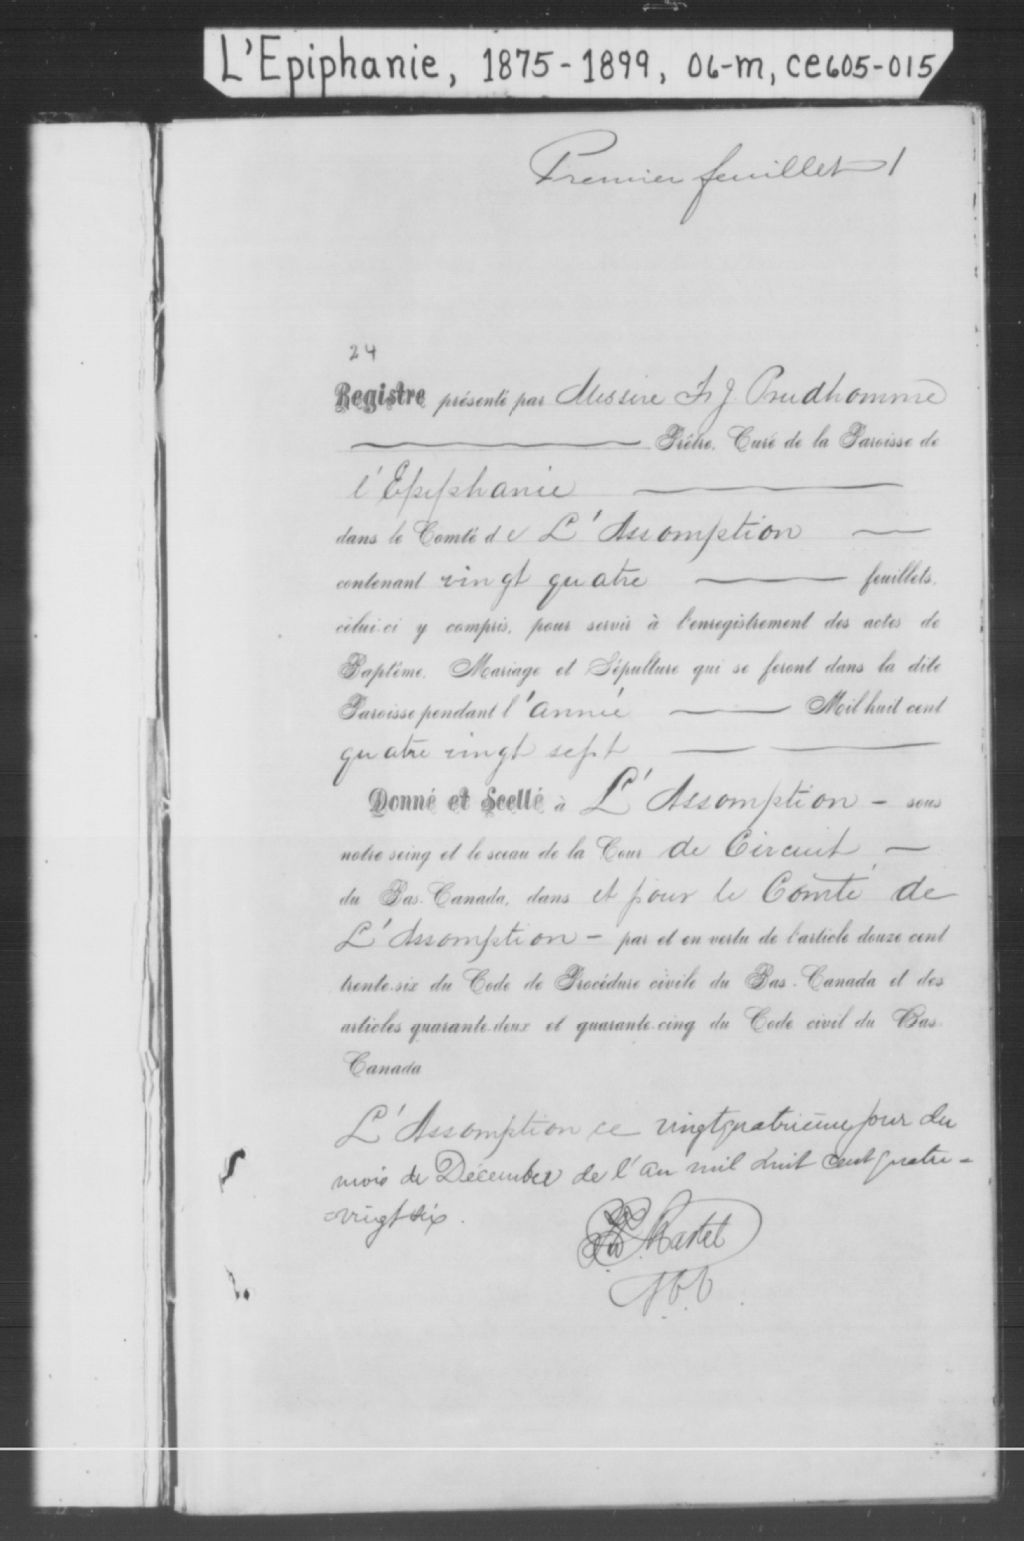 L'Epiphanie, 1875-1899, 06-m, ce605-015
Premier feuillet 1
24
Registre présenté par Messire F. J. Prudhomme
Prêtre, Curé de la Paroisse de
l'Epiphanie
dans le Comté de L'Assomption
contenant vingt quatre feuillets,
celui-ci y compris, pour servir à l'enregistrement des actes de
Baptême, Mariage et Sépulture qui se feront dans la dite
Paroisse pendant l'année Mil huit cent
quatre vingt sept
Donné et Scellé à L'Assomption - sous
notre seing et le sceau de la Cour de Circuit -
du Bas-Canada, dans et pour le Comté de
L'Assomption - par et en vertu de l'article douze cent
trente-six du Code de Procédure civile du Bas-Canada et des
articles quarante-deux et quarante-cinq du Code civil du Bas-
Canada
L'Assomption ce vingtquatrième jour du
mois de Décembre de l'an mil huit cent quatre-
vingt six.
Martel